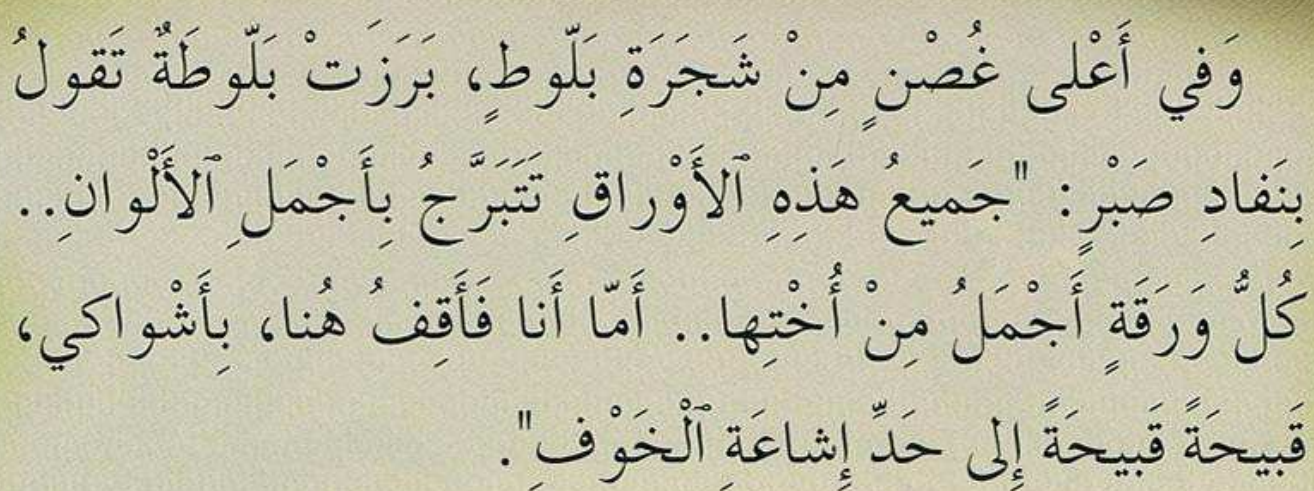 وَفي أَعْلى غُصْنٍ مِنْ شَجَرَةِ بَلّوطٍ، بَرَزَتْ بَلّوطَةٌ تَقولُ
بِنَفادِ صَبْرٍ: "جَميعُ هَذِهِ ٱلأَوْراقِ تَتَبَرَّجُ بِأَجْمَلِ ٱلأَلْوانِ..
كُلُّ وَرَقَةٍ أَجْمَلُ مِنْ أُخْتِها.. أَمّا أَنا فَأَقِفُ هُنا، بِأَشْواكي،
قَبيحَةً قَبيحَةً إِلى حَدِّ إِشاعَةِ ٱلْخَوْفِ".